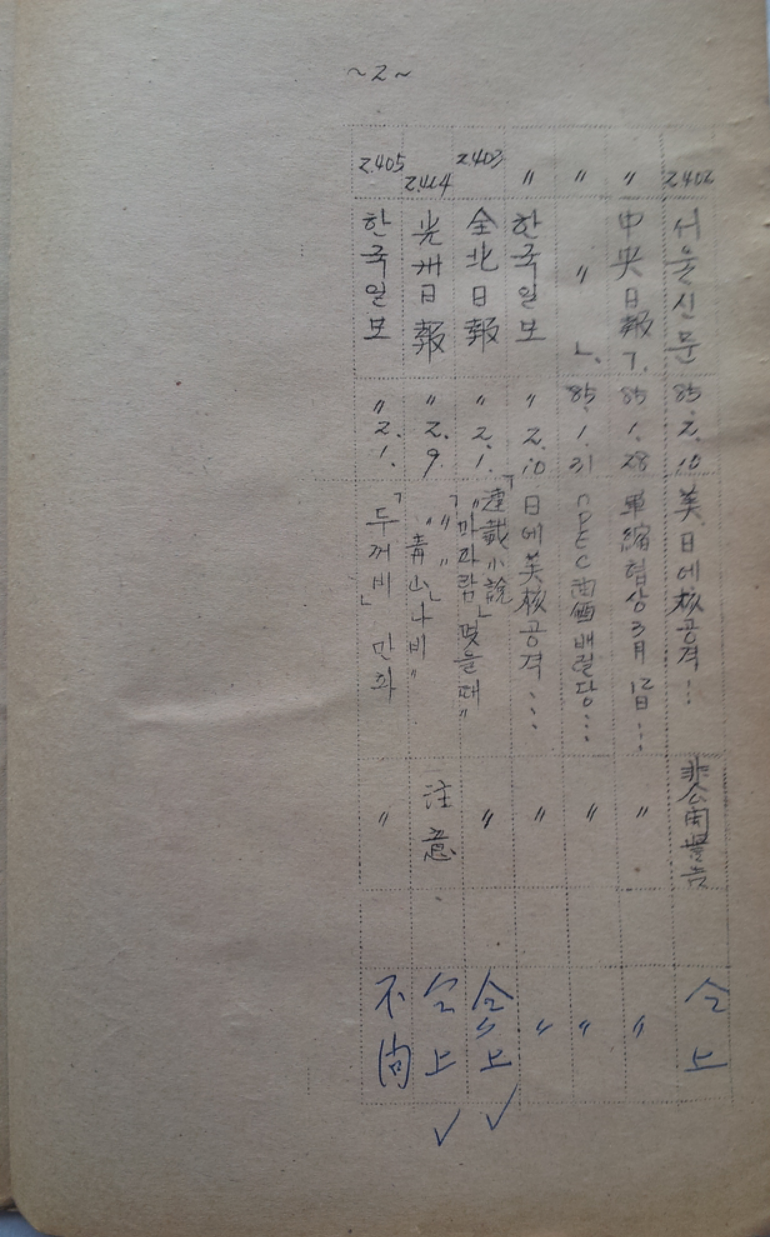 ~2~
2.402 서울신문 85. 2. 10 美, 日에 核공격… 非公開警告 仝上
〃 中央日報 7. 85 1. 28 軍縮협상 3月 12日… 〃 〃
〃 〃 ㄴ. 85. 1. 31 OPEC 油價 배럴당… 〃 〃
〃 한국일보 〃 2. 10 「日에 美核공격… 〃 〃
2.403 全北日報 〃 2. 1. 連載小說 「마파람」 멎을때" 〃 仝上
2.404 光州日報 〃 2. 9. 〃 〃 "青山나비" 注意 仝上
2.405 한국일보 〃 2. 1. 「두꺼비」 만화 〃 不問